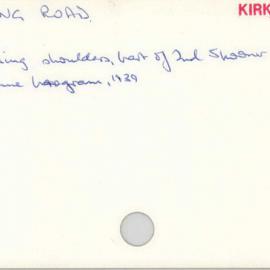 NG ROAD. KIRK
ing shoulders, part of 2nd Spooner
me programme, 1939